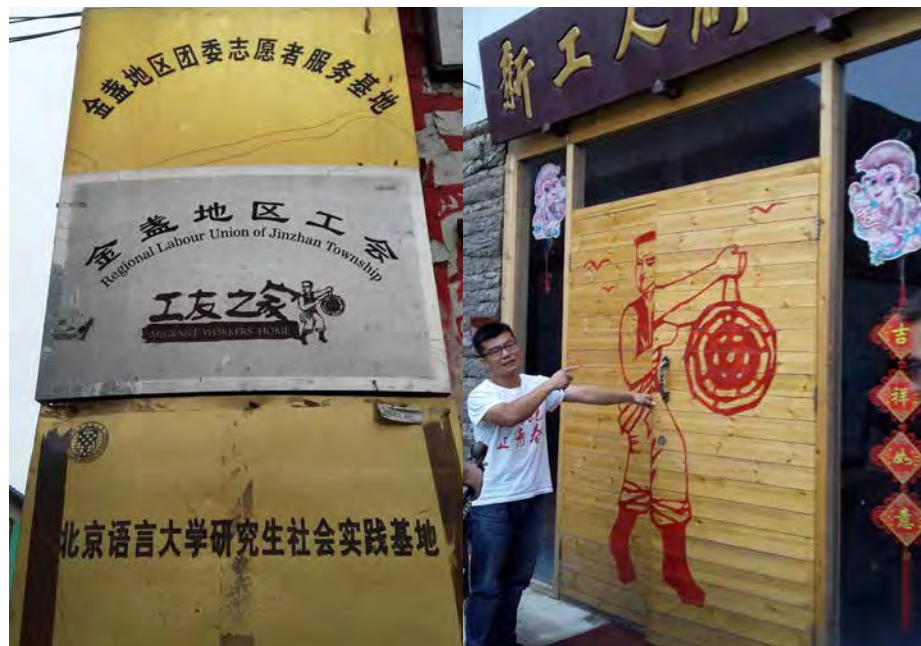 金盏地区团委志愿者服务基地
金盏地区工会
Regional Labour Union of Jinzhan Township
工友之家
MIGRANT WORKERS HOME
北京语言大学研究生社会实践基地
新工人
正青春
吉
祥
如
意